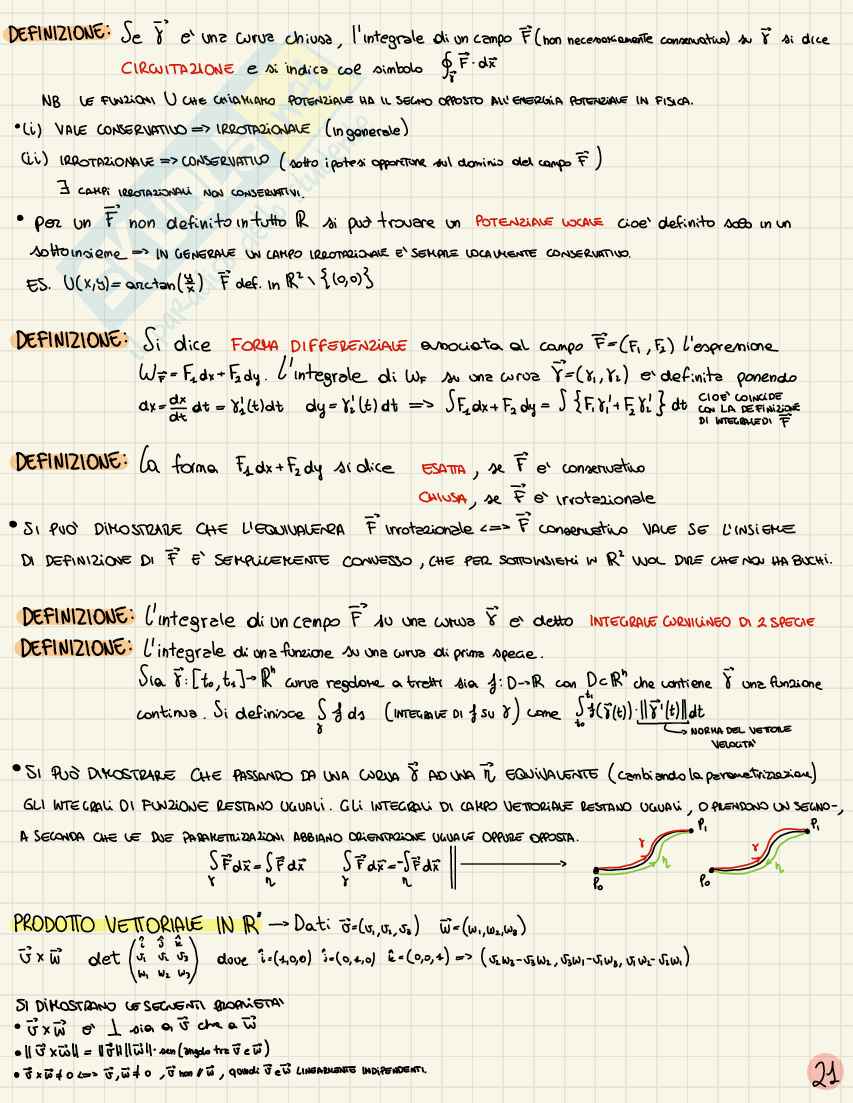 DEFINIZIONE: Se γ⃗ e' una curva chiusa, l'integrale di un campo F⃗ (non necessariamente conservativo) su γ⃗ si dice
CIRCUITAZIONE e si indica col simbolo ∮_γ⃗ F⃗·dx⃗
NB LE FUNZIONI U CHE CHIAMIAMO POTENZIALE HA IL SEGNO OPPOSTO ALL'ENERGIA POTENZIALE IN FISICA.
•(i) VALE CONSERVATIVO => IRROTAZIONALE (in generale)
(ii) IRROTAZIONALE => CONSERVATIVO (sotto ipotesi opportune sul dominio del campo F⃗)
∃ CAMPI IRROTAZIONALI NON CONSERVATIVI.
• Per un F⃗ non definito in tutto ℝ si può trovare un POTENZIALE LOCALE cioe' definito solo in un
sottoinsieme => IN GENERALE UN CAMPO IRROTAZIONALE E' SEMPRE LOCALMENTE CONSERVATIVO.
ES. U(x,y)= arctan(y/x) F⃗ def. in ℝ² \ {(0,0)}
DEFINIZIONE: Si dice FORMA DIFFERENZIALE associata al campo F⃗=(F₁,F₂) l'espressione
W_F⃗ = F₁dx+F₂dy. L'integrale di W_F su una curva γ⃗=(γ₁,γ₂) e' definita ponendo
dx= dx/dt dt = γ₁'(t)dt dy=γ₂'(t)dt => ∫F₁dx+F₂dy = ∫{F₁γ₁'+F₂γ₂'} dt CIOE' COINCIDE
CON LA DEFINIZIONE
DI INTEGRALE DI F⃗
DEFINIZIONE: La forma F₁dx+F₂dy si dice ESATTA, se F⃗ e' conservativo
CHIUSA, se F⃗ e' irrotazionale
• SI PUÒ DIMOSTRARE CHE L'EQUIVALENZA F⃗ irrotazionale <=> F⃗ conservativo VALE SE L'INSIEME
DI DEFINIZIONE DI F⃗ E' SEMPLICEMENTE CONNESSO, CHE PER SOTTOINSIEMI IN ℝ² VUOL DIRE CHE NON HA BUCHI.
DEFINIZIONE: L'integrale di un campo F⃗ su una curva γ⃗ e' detto INTEGRALE CURVILINEO DI 2 SPECIE
DEFINIZIONE: L'integrale di una funzione su una curva di prima specie.
Sia γ⃗:[t₀,t₁]→ℝⁿ curva regolare a tratti sia f:D→ℝ con D⊂ℝⁿ che contiene γ⃗ una funzione
continua. Si definisce ∫_γ f ds (INTEGRALE DI f SU γ) come ∫_{t₀}^{t₁} f(γ⃗(t))·||γ⃗'(t)||dt
→ NORMA DEL VETTORE
VELOCITA'
• SI PUÒ DIMOSTRARE CHE PASSANDO DA UNA CURVA γ⃗ AD UNA η⃗ EQUIVALENTE (cambiando la parametrizzazione)
GLI INTEGRALI DI FUNZIONE RESTANO UGUALI. GLI INTEGRALI DI CAMPO VETTORIALE RESTANO UGUALI, O PRENDONO UN SEGNO -,
A SECONDA CHE LE DUE PARAMETRIZZAZIONI ABBIANO ORIENTAZIONE UGUALE OPPURE OPPOSTA.
∫_γ F⃗dx⃗ = ∫_η F⃗dx⃗ ∫_γ F⃗dx⃗ = -∫_η F⃗dx⃗ || → P₀ γ η P₁ P₀ γ η P₁
PRODOTTO VETTORIALE IN ℝ³ → Dati v⃗=(v₁,v₂,v₃) w⃗=(w₁,w₂,w₃)
v⃗ × w⃗ det (î ĵ k̂ / v₁ v₂ v₃ / w₁ w₂ w₃) dove î=(1,0,0) ĵ=(0,1,0) k̂=(0,0,1) => (v₂w₃-v₃w₂, v₃w₁-v₁w₃, v₁w₂-v₂w₁)
SI DIMOSTRANO LE SEGUENTI PROPRIETA'
• v⃗×w⃗ e' ⊥ sia a v⃗ che a w⃗
• ||v⃗×w⃗|| = ||v⃗|| ||w⃗|| · sen(angolo tra v⃗ e w⃗)
• v⃗×w⃗≠0 <=> v⃗,w⃗≠0, v⃗ non // w⃗, quindi v⃗ e w⃗ LINEARMENTE INDIPENDENTI.
21